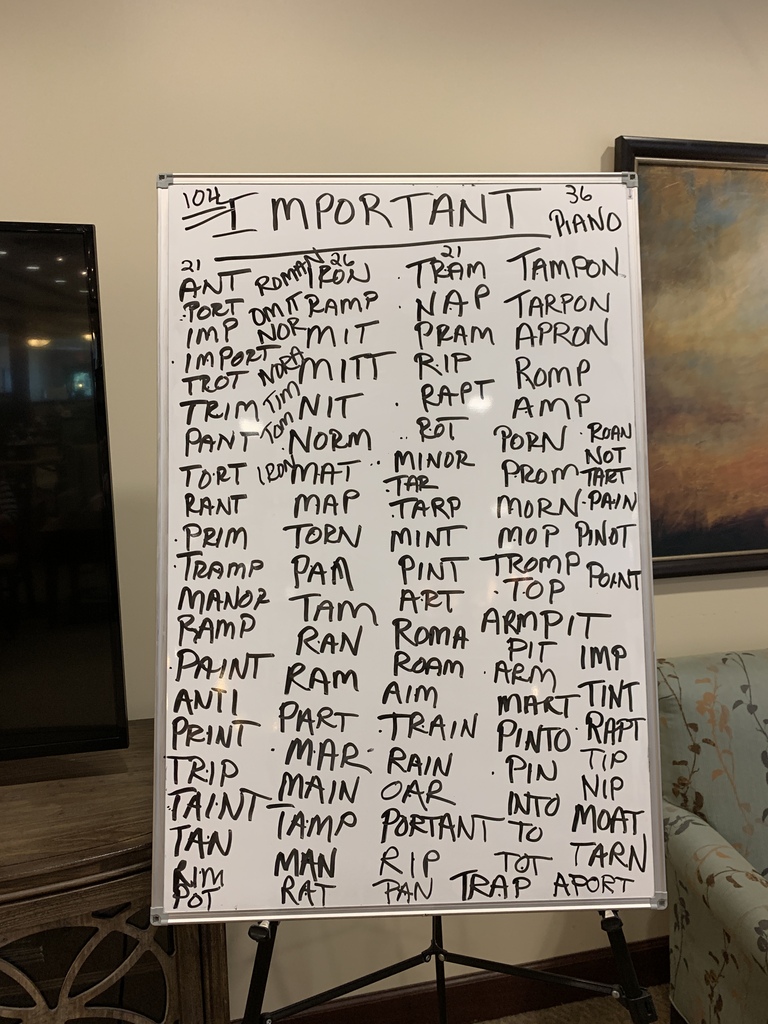 104 IMPORTANT 36
PIANO
21
ANT
PORT
IMP
IMPORT
TROT
TRIM
PANT
TORT
RANT
PRIM
TRAMP
MANOR
RAMP
PAINT
ANTI
PRINT
TRIP
TAINT
TAN
RIM
POT
ROMAN
OMIT
NOR
NORA
TIM
TOM
IRON
26
IRON
RAMP
MIT
MITT
NIT
NORM
MAT
MAP
TORN
PAM
TAM
RAN
RAM
PART
MAR
MAIN
TAMP
MAN
RAT
21
TRAM
NAP
PRAM
RIP
RAPT
ROT
MINOR
TAR
TARP
MINT
PINT
ART
ROMA
ROAM
AIM
TRAIN
RAIN
OAR
PORTANT
RIP
PAN
TAMPON
TARPON
APRON
ROMP
AMP
PORN
PROM
MORN
MOP
TROMP
TOP
ARMPIT
PIT
ARM
MART
PINTO
PIN
INTO
TO
TOT
TRAP
ROAN
NOT
TART
PAIN
PINOT
POINT
IMP
TINT
RAPT
TIP
NIP
MOAT
TARN
APORT